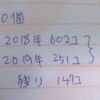 0個
2018年 602コ
2019年 251コ
残り 147コ